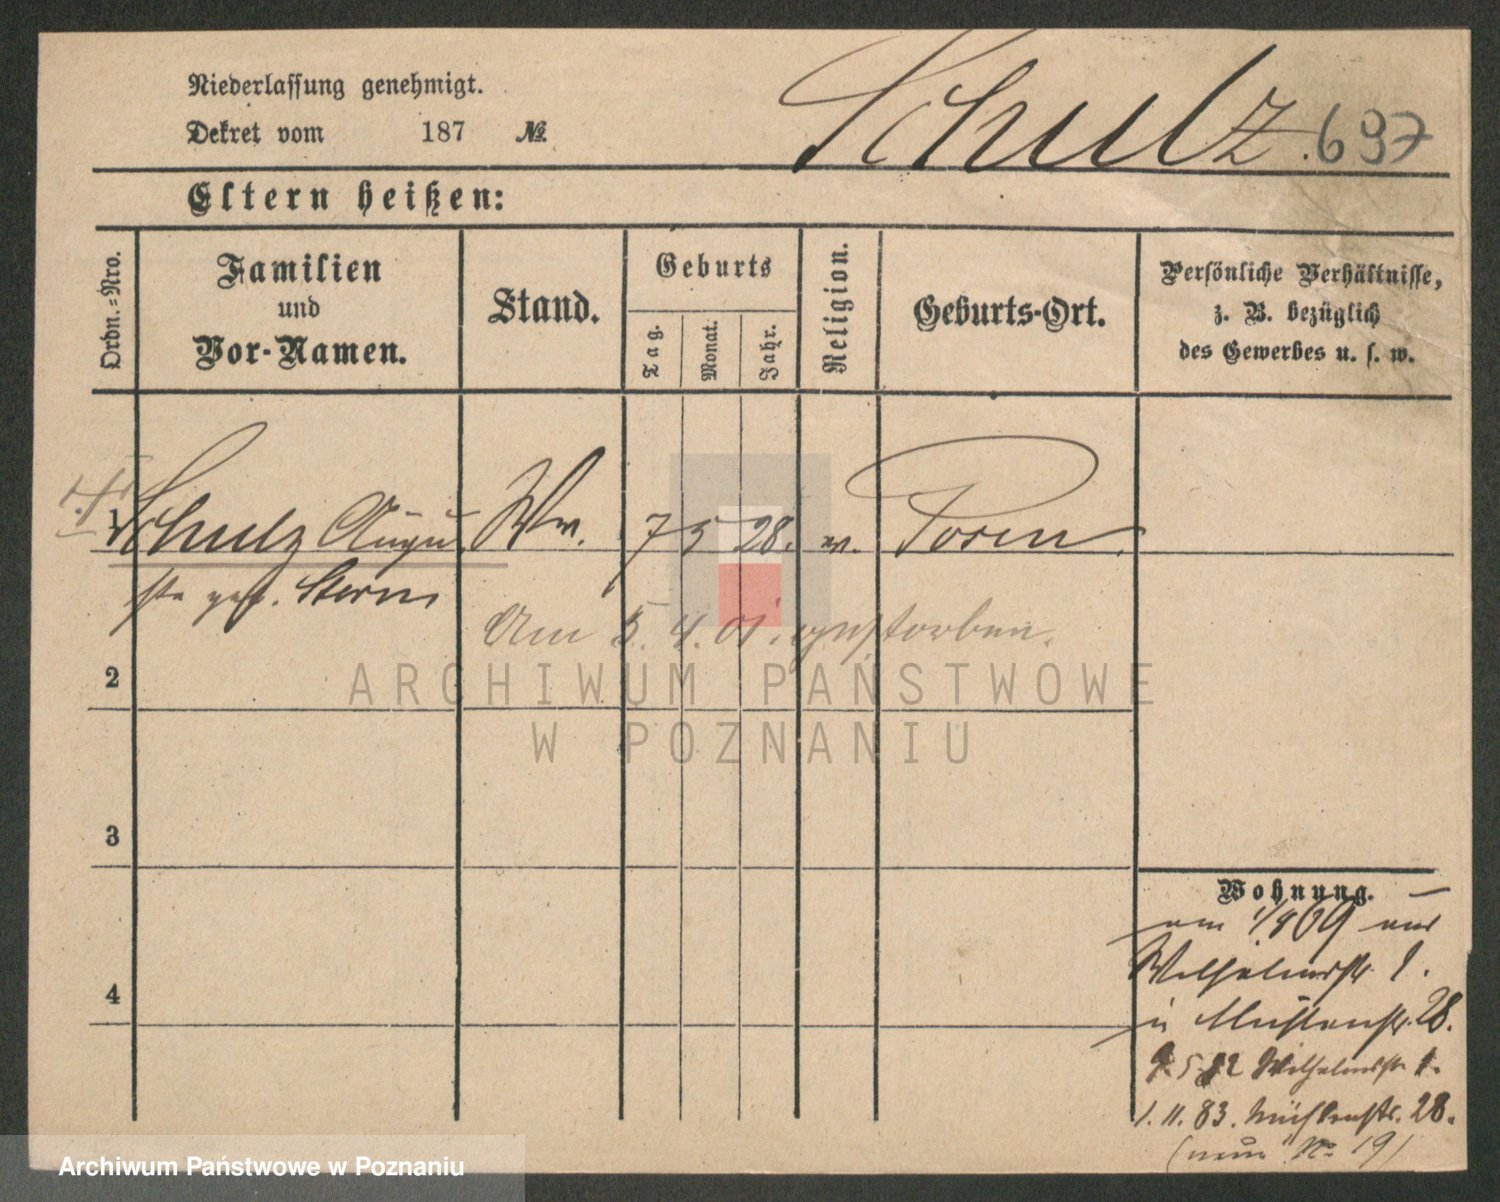 Niederlassung genehmigt.
Dekret vom 187 №
Schulz. 697
Eltern heißen:
Ordn.=Nro.
Familien
und
Vor-Namen.
Stand.
Geburts
Tag.
Monat.
Jahr.
Religion.
Geburts-Ort.
Persönliche Verhältnisse,
z. B. bezüglich
des Gewerbes u. s. w.
1 Schulz Augu Ww. 7 5 28. Posen
ste geb. Stern
Am 5. 4. 01. gestorben.
2
3
4
Wohnung.
am 1/8 69 aus
Wilhelmstr. 1.
in Mühlenstr. 28.
9. 5. 82 Wilhelmstr. 1.
1. 11. 83. Mühlenstr. 28.
(neue No 19)
ARCHIWUM PAŃSTWOWE
W POZNANIU
Archiwum Państwowe w Poznaniu